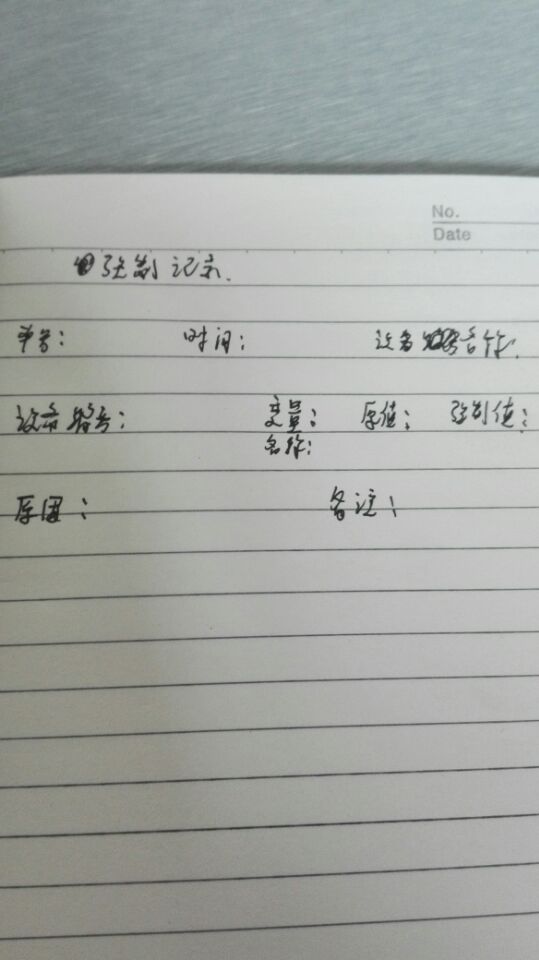 No.
Date
强制记录.
单号: 时间: 设备名称.
设备编号: 变量: 原值: 强制值:
名称:
原因: 备注: